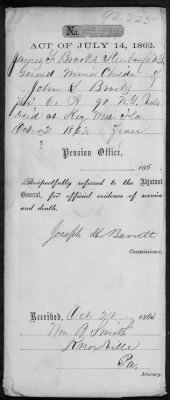 92,225
No.
ACT OF JULY 14, 1862.
James F Brooks
Minor Children of
John S Brooks
Co R 90 N.Y. Vols
died at Key West Fla
Oct 2 1862
Pension Office,
186 .
Respectfully referred to the Adjutant
General, for official evidence of service
and death.
Joseph H Barrett
Commissioner.
Received, Oct 24 186
Wm B Smith
Knoxville
Pa.
Attorney.